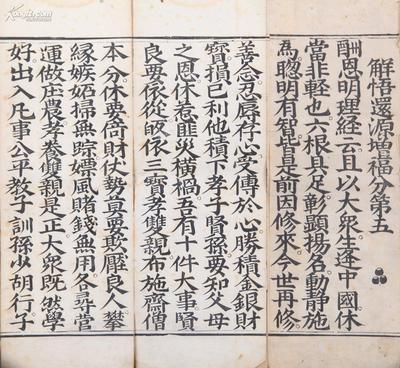 解悟還源增福分第五
酬恩明理経云且以大衆生逢中國休
當非軽也六根具足彰顯揚名動静施
為聦明有智皆是前因修來今世再修
善念忍辱存心受傳於心勝積金銀財
寳損已利他積下孝子賢孫要知父母
之恩休惹匪災横禍吾有十件大事賢
良要依從皈依三寳孝雙親布施齋僧
本分休要倚財仗勢真要欺壓良人攀
縁嫉妬掃無踪嫖風賭錢無用各尋營
運做庄農孝養雙親是正大衆既然學
好出入凡事公平教子訓孫少胡行子